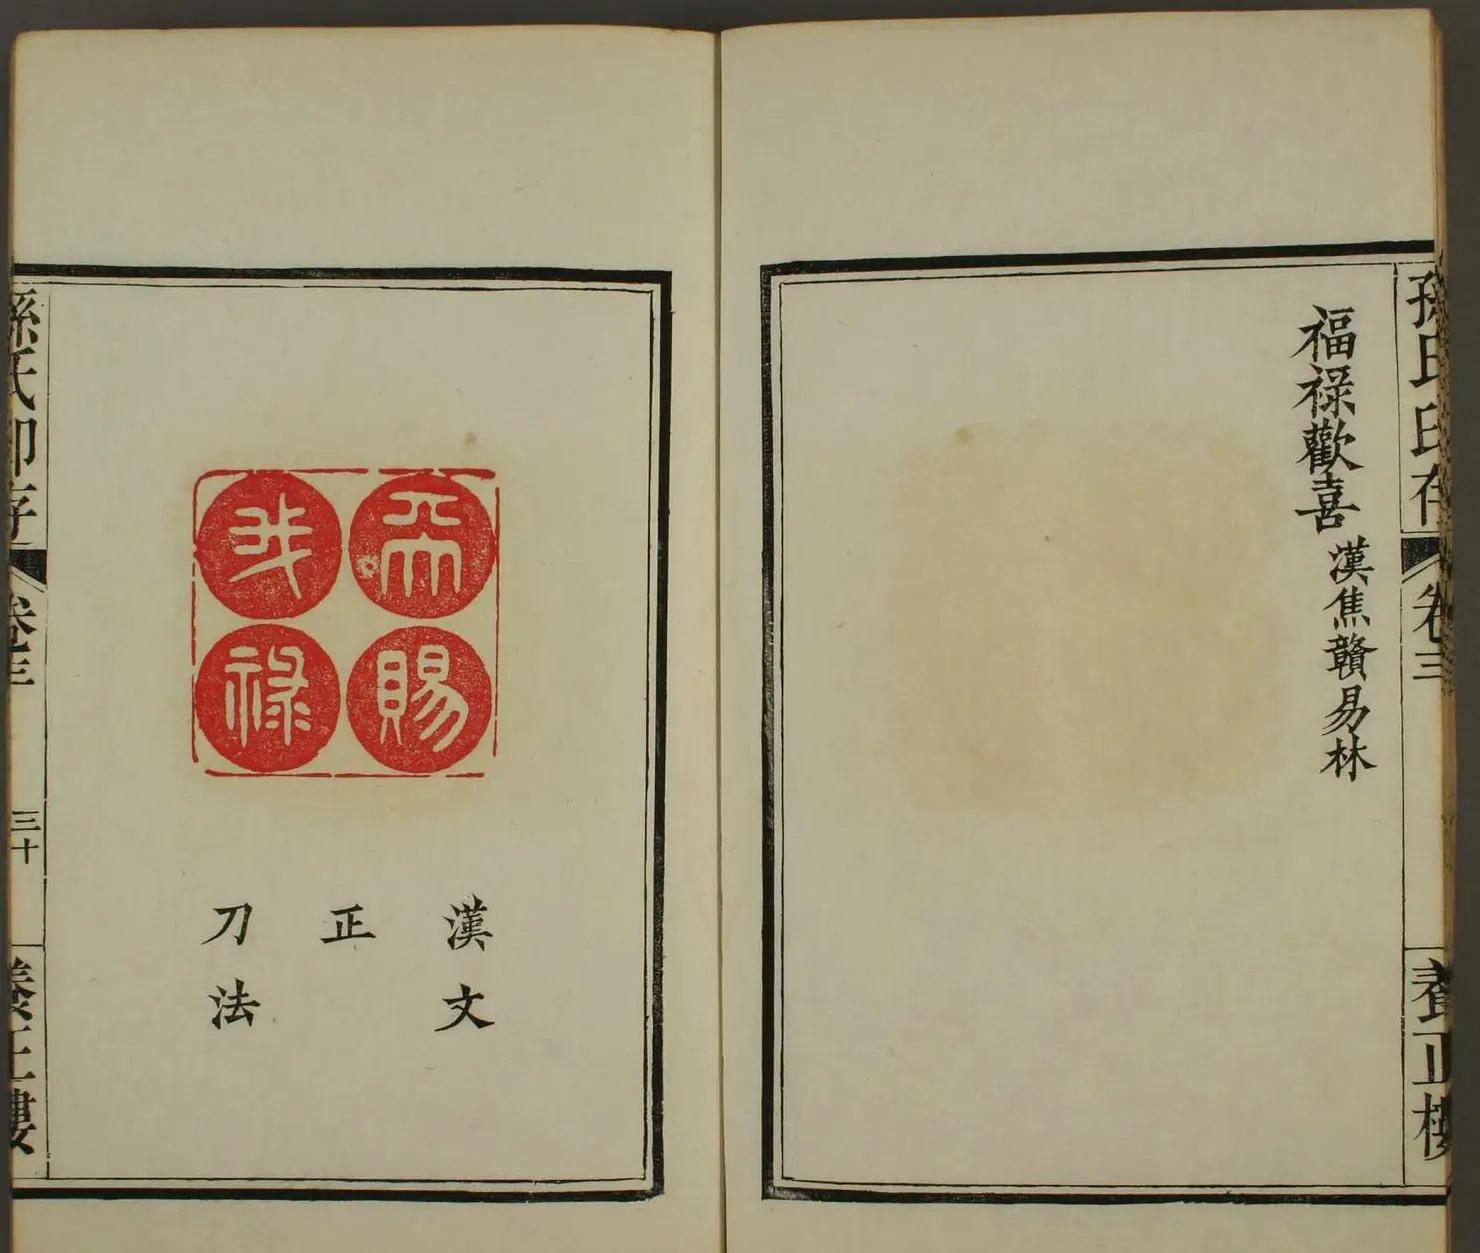 孫氏印存
卷三
養正樓
福祿歡喜
漢焦贛易林
天賜
我祿
漢文
正
刀法
孫氏印存
卷三
三十
養正樓